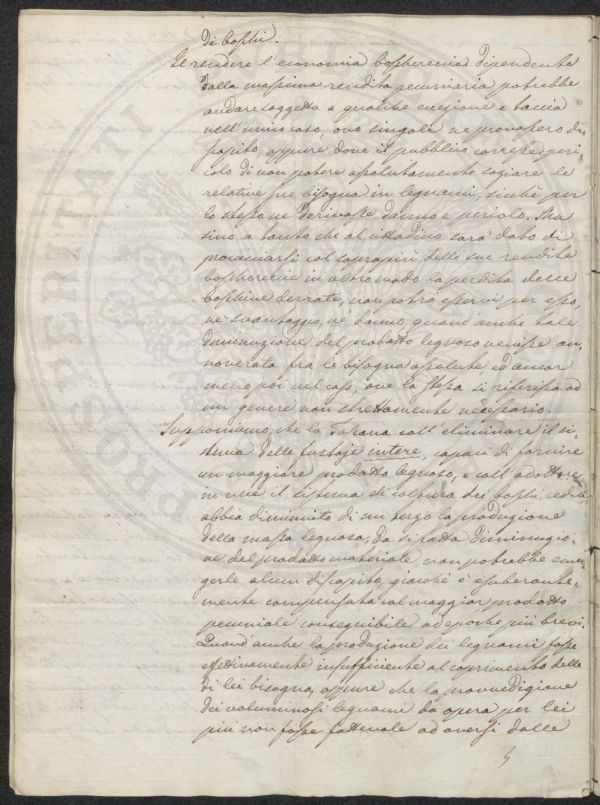 di boschi.
Se rendere l'economia boschereccia dipendente
dalla massima rendita pecuniaria potrebbe
andare soggetto a qualche eccezione e taccia
nell'unico caso, ove singoli ne provassero di-
scapito, oppure dove il pubblico corresse peri-
colo di non potere assolutamente saziare le
relative sue bisogna in legnami, sicchè per
lo stesso ne derivasse danno e pericolo. Ma
sino a tanto che al cittadino sarà dato di
procacciarsi col soprapiù delle sue rendite
boschereccie in altro modo la perdita delle
boschive derrate, non potrà esservi per esso,
nè svantaggio, nè danno, quand'anche tale
diminuzione del prodotto legnoso venisse an-
noverata fra le bisogna assolute ed ancor
meno poi nel caso, ove la stessa si riferisca ad
un genere non strettamente necessario.
Supponiamo, che la Toscana coll'eliminare il si-
stema delle fustaje intere, capaci di fornire
un maggiore prodotto legnoso, e coll'adottare
in vece il sistema di coltura dei boschi cedui
abbia diminuito di un terzo la produzione
della massa legnosa, da sì fatta diminuzio-
ne del prodotto materiale non potrebbe emer-
gerle alcun discapito, giacchè è esuberante-
mente compensata col maggior prodotto
pecuniale conseguibile ad epoche più brevi.
Quand'anche la produzione dei legnami fosse
effettivamente insufficiente al coprimento delle
di lei bisogna, oppure che la provvedigione
dei voluminosi legnami da opera per lei
più non fosse fattevole ad aversi dalle
PROSPERITATI PUBLICAE